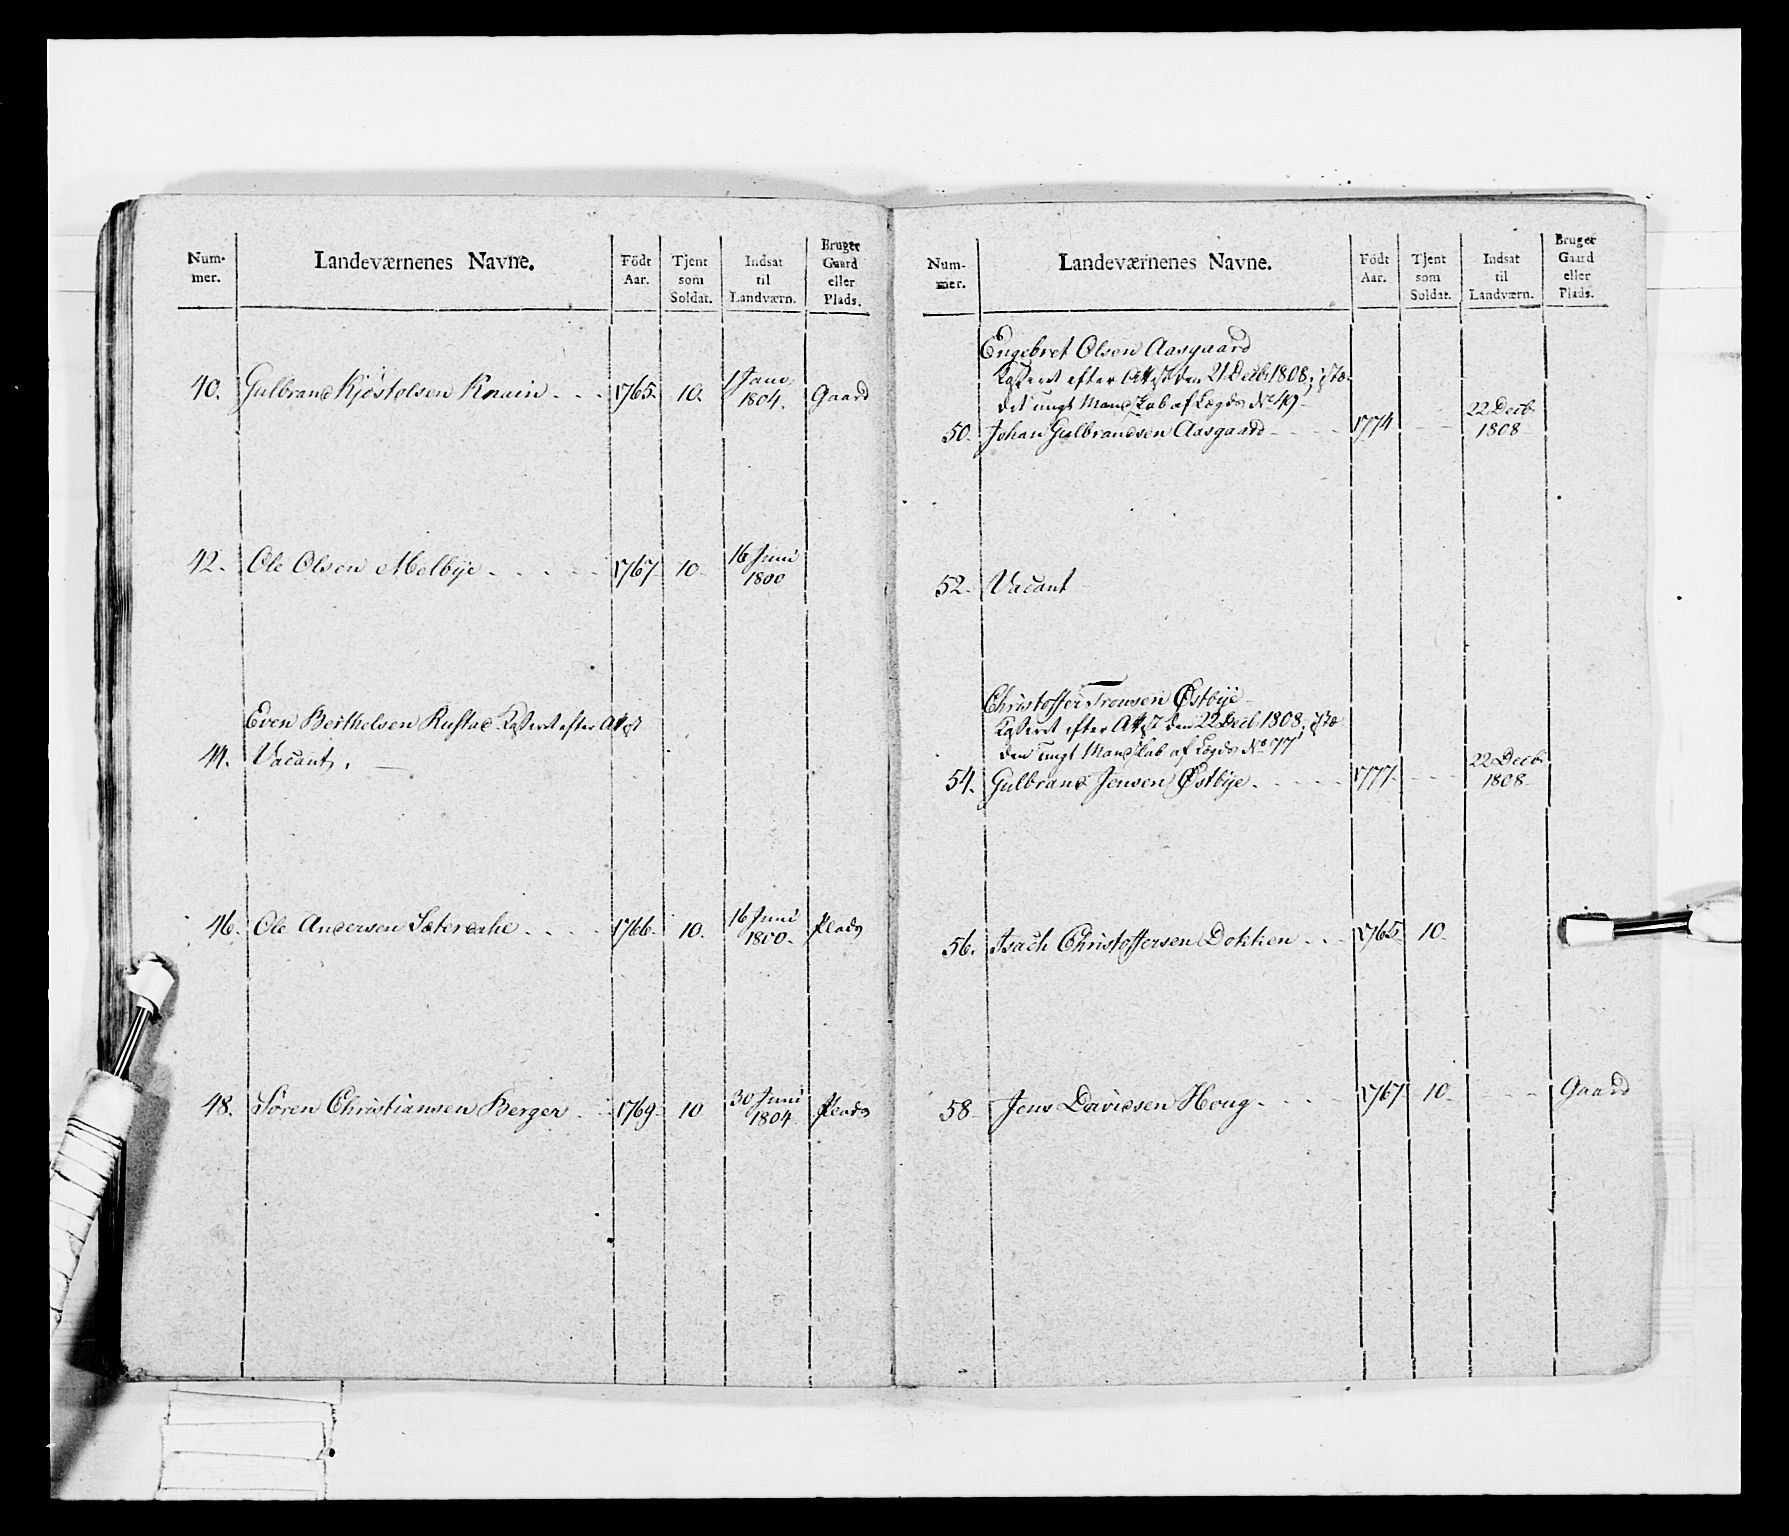 Num-
mer.
Landeværnenes Navne.
Födt
Aar.
Tjent
som
Soldat.
Indsat
til
Landværn.
Bruger
Gaard
eller
Plads.
40. Gulbrand Kjöstolsen Knain 1765. 10. 1 Janv 1804. Gaard
42. Ole Olsen Melbye 1767 10 16 Juni 1800
Even Berthelsen Rustad Kasseret efter Attest
44. Vacant.
46. Ole Andersen 1766. 10. 16 Juni 1800. Plads
48. Sören Christiansen Berger 1769 10 30 Juni 1804 Plads
Num-
mer.
Landeværnenes Navne.
Födt
Aar.
Tjent
som
Soldat.
Indsat
til
Landværn.
Bruger
Gaard
eller
Plads.
Engebret Olsen Aasgaard
Kasseret efter Attest den 21 Decb 1808, istæ-
det ungt Mandskab af Lægds No 49
50. Johan Gulbrandsen Aasgaard 1774 22 Decb 1808
52. Vacant
Christoffer Tronsen Østbye
Kasseret efter Attest den 22 Decb 1808, istæ
den ungt Mandskab af Lægds No 77
54. Gulbrand Jensen Østbye 1777. 22 Decb 1808
56. Isach Christoffersen Dokken 1765 10
58 Jens Davidsen Houg 1767 10 Gaard